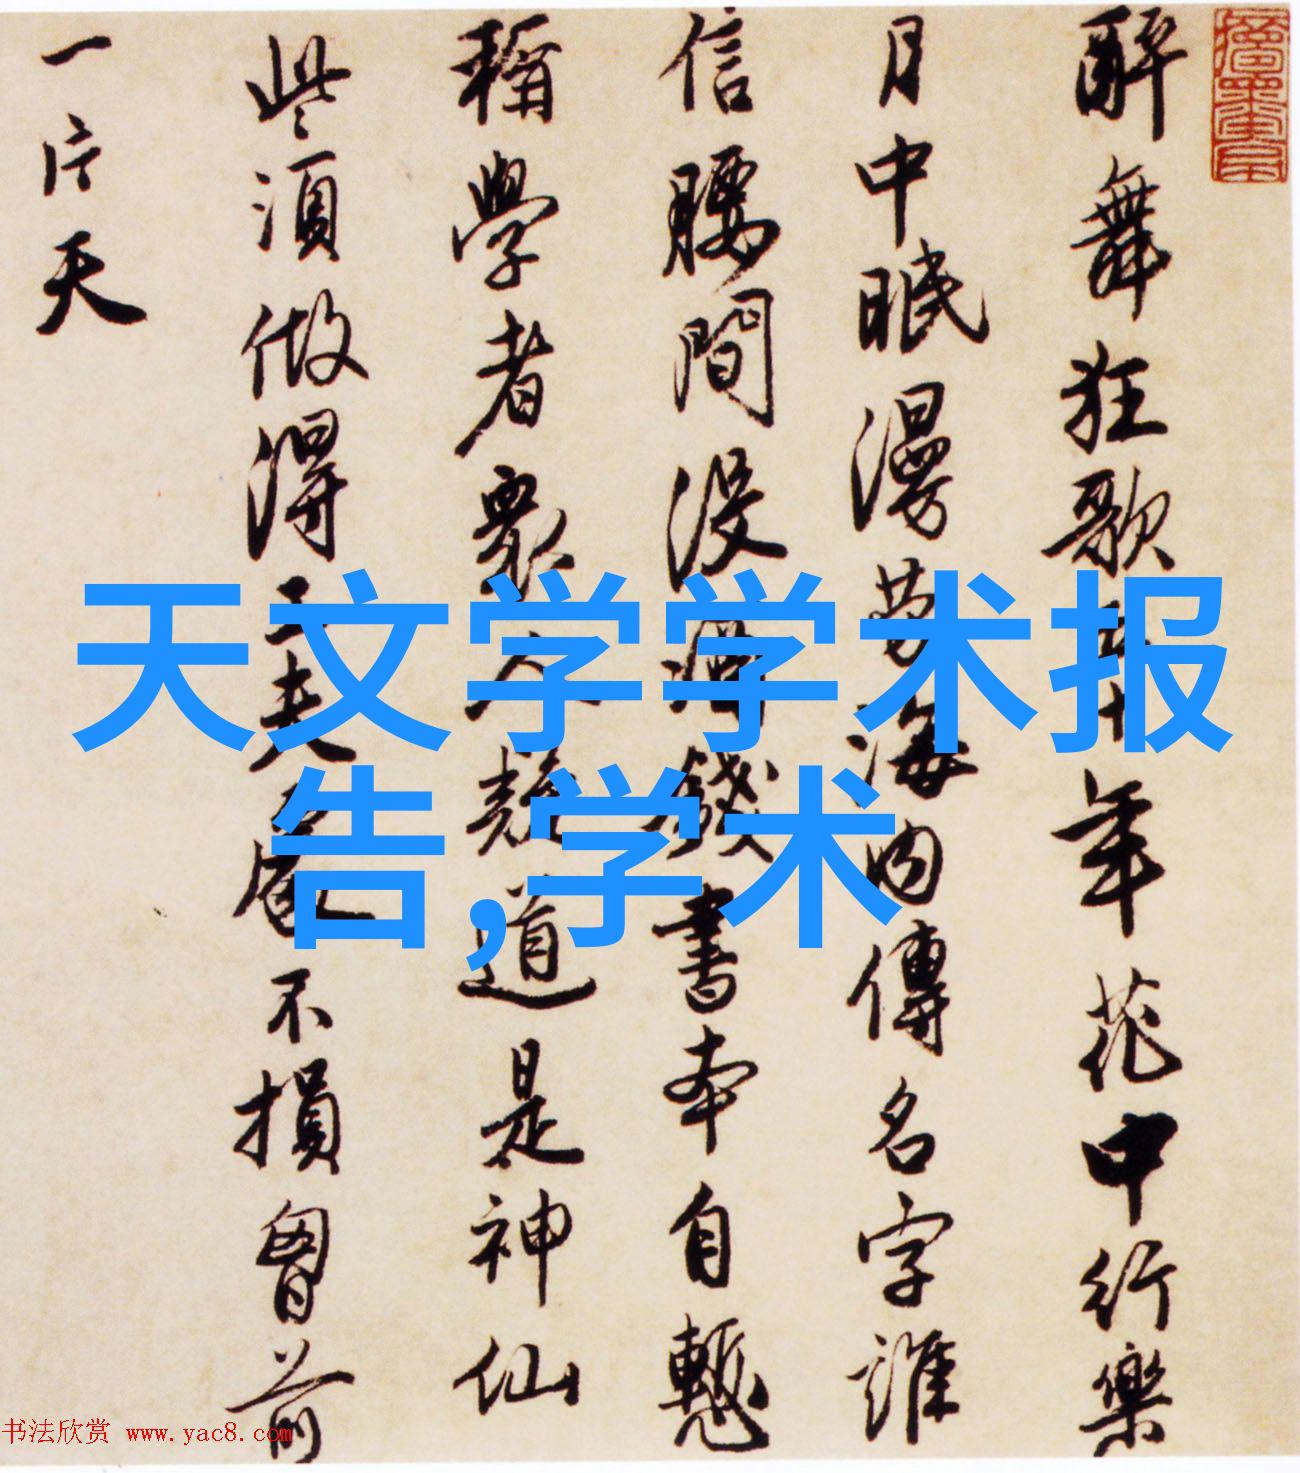 醉舞狂歌五十年花中行樂
月中眠漫勞海内傳名字誰
信腰間沒酒錢書本自慙
稱學者衆人疑道是神仙
些須做得工夫處不損胷前
一片天
天文学学术报
告,学术
书法欣赏 www.yac8.com